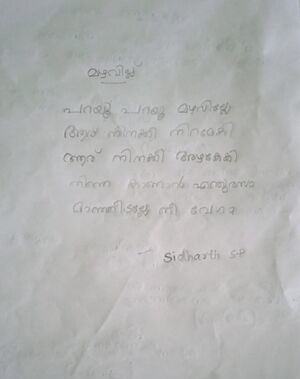 മഴവില്ല്
പറയൂ പറയൂ മഴവില്ലേ
ആര് നിനക്കീ നിറമേകി
ആര് നിനക്കീ അഴകേകി
നിന്നെ കാണാൻ എന്തുരസം
മാഞ്ഞിടല്ലേ നീ വേഗം
- Sidharth SP